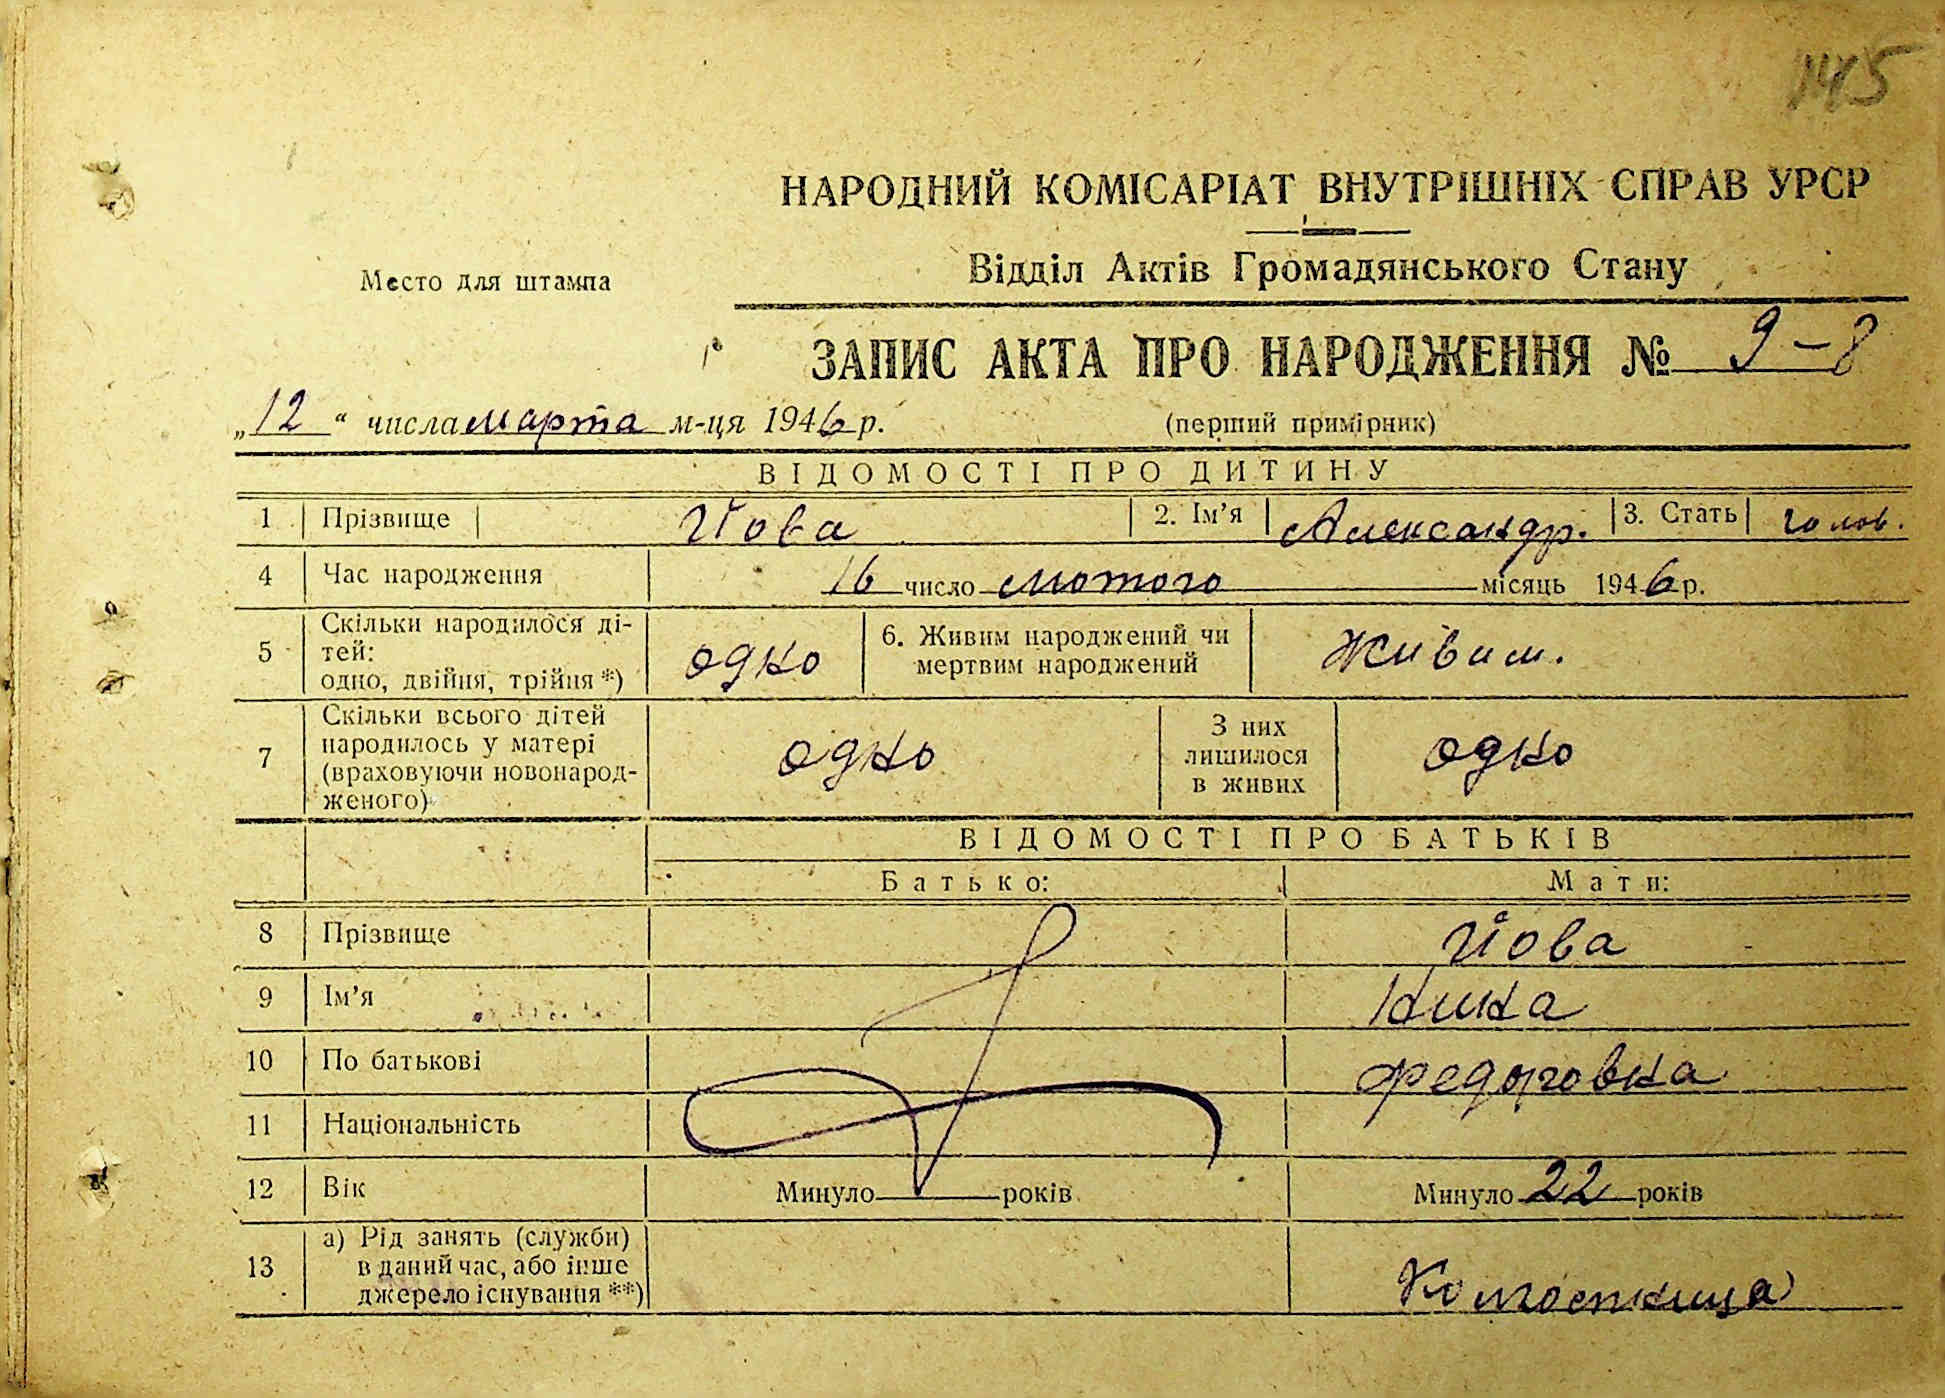 145
НАРОДНИЙ КОМІСАРІАТ ВНУТРІШНІХ СПРАВ УРСР
Відділ Актів Громадянського Стану
Место для штампа
ЗАПИС АКТА ПРО НАРОДЖЕННЯ № 9-8
„12“ числа марта м-ця 1946 р. (перший примірник)
ВІДОМОСТІ ПРО ДИТИНУ
1 Прізвище Йова 2. Ім’я Александр. 3. Стать голов.
4 Час народження 16 число лютого місяць 1946 р.
5 Скільки народилося ді-
тей:
одно, двійня, трійня *) одно 6. Живим народжений чи
мертвим народжений Живим.
7 Скільки всього дітей
народилось у матері
(враховуючи новонарод-
женого) одно З них
лишилося
в живих одно
ВІДОМОСТІ ПРО БАТЬКІВ
Батько: Мати:
8 Прізвище Йова
9 Ім’я Нина
10 По батькові Федоровна
11 Національність
12 Вік Минуло років Минуло 22 років
13 а) Рід занять (служби)
в даний час, або інше
джерело існування **) Колгоспница